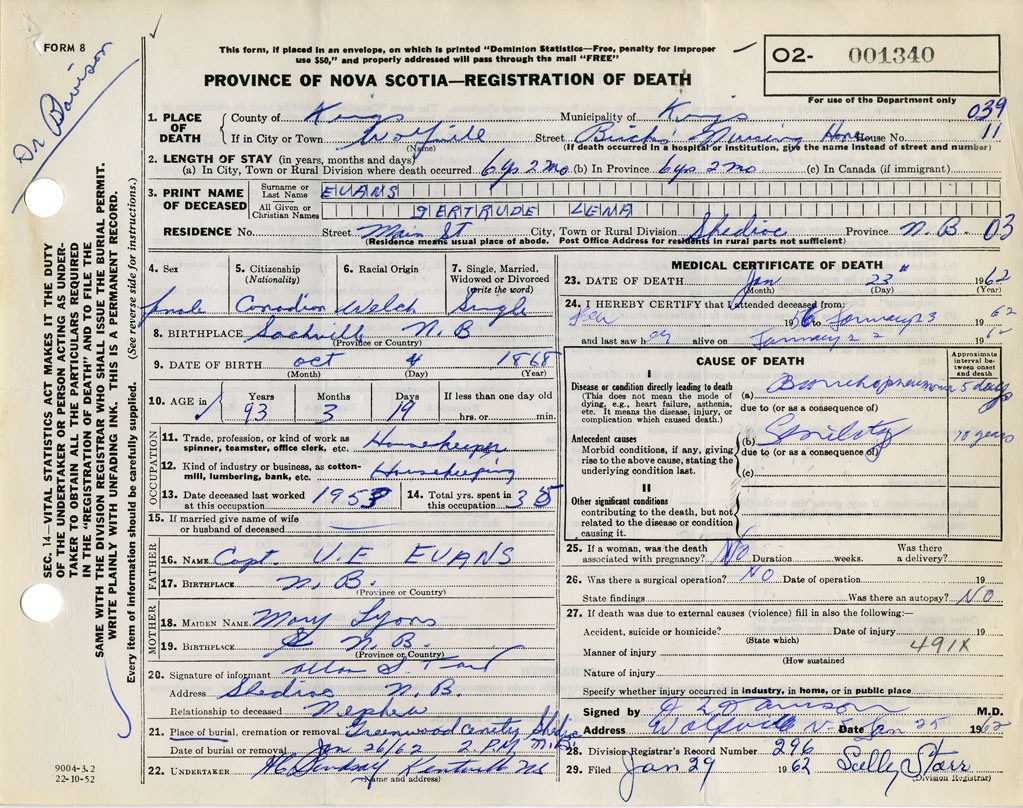 FORM 8
Dr Davison
This form, if placed in an envelope, on which is printed "Dominion Statistics—Free, penalty for improper
use $50," and properly addressed will pass through the mail "FREE"
PROVINCE OF NOVA SCOTIA—REGISTRATION OF DEATH
O2- 001340
For use of the Department only
039
11
1. PLACE OF DEATH County of Kings Municipality of Kings
If in City or Town Wolfville Street Nursing Home House No.
(Name) (If death occurred in a hospital or institution, give the name instead of street and number)
2. LENGTH OF STAY (in years, months and days)
(a) In City, Town or Rural Division where death occurred 6 ys 2 mo (b) In Province 6 ys 2 mo (c) In Canada (if immigrant)
3. PRINT NAME OF DECEASED Surname or Last Name EVANS
All Given or Christian Names GERTRUDE LENA
RESIDENCE No. Street Main St City, Town or Rural Division Shediac Province N.B. 03
(Residence means usual place of abode. Post Office Address for residents in rural parts not sufficient)
4. Sex 5. Citizenship (Nationality) 6. Racial Origin 7. Single, Married, Widowed or Divorced (write the word)
female Canadian Welch Single
8. BIRTHPLACE Sackville N.B
(Province or Country)
9. DATE OF BIRTH Oct 4 1868
(Month) (Day) (Year)
10. AGE in Years Months Days If less than one day old
93 3 19 hrs. or min.
OCCUPATION
11. Trade, profession, or kind of work as spinner, teamster, office clerk, etc. Housekeeper
12. Kind of industry or business, as cotton-mill, lumbering, bank, etc. Housekeeping
13. Date deceased last worked at this occupation 1953 14. Total yrs. spent in this occupation 35
15. If married give name of wife or husband of deceased
FATHER
16. NAME Capt. U.E EVANS
17. BIRTHPLACE N.B.
(Province or Country)
MOTHER
18. MAIDEN NAME Mary Lyons
19. BIRTHPLACE N.B.
(Province or Country)
20. Signature of informant Allan S. Tait
Address Shediac N.B.
Relationship to deceased Nephew
21. Place of burial, cremation or removal Greenwood Shediac
Date of burial or removal Jan 26/62 2 P.M. N.B.
22. UNDERTAKER Lindsay Kentville NS
(Name and address)
MEDICAL CERTIFICATE OF DEATH
23. DATE OF DEATH Jan 23 1962
(Month) (Day) (Year)
24. I HEREBY CERTIFY that I attended deceased from:
1956 to January 23 1962
and last saw her alive on January 22 196
CAUSE OF DEATH
Approximate interval between onset and death
I
Disease or condition directly leading to death
(This does not mean the mode of dying, e.g., heart failure, asthenia, etc. It means the disease, injury, or complication which caused death.)
(a) Bronchopneumonia 5 days
due to (or as a consequence of)
Antecedent causes
Morbid conditions, if any, giving rise to the above cause, stating the underlying condition last.
(b) Senility 10 years
due to (or as a consequence of)
(c)
II
Other significant conditions
contributing to the death, but not related to the disease or condition causing it.
25. If a woman, was the death associated with pregnancy? No Duration weeks. Was there a delivery?
26. Was there a surgical operation? NO Date of operation 19
State findings Was there an autopsy? NO
27. If death was due to external causes (violence) fill in also the following:—
Accident, suicide or homicide? Date of injury 19
(State which) 491X
Manner of injury
(How sustained)
Nature of injury
Specify whether injury occurred in industry, in home, or in public place
Signed by Davison M.D.
Address Wolfville N.S. Date Jan 25 1962
28. Division Registrar's Record Number 296
29. Filed Jan 29 1962 Selly Starr
(Division Registrar)
SEC. 14—VITAL STATISTICS ACT MAKES IT THE DUTY
OF THE UNDERTAKER OR PERSON ACTING AS UNDER-
TAKER TO OBTAIN ALL THE PARTICULARS REQUIRED
IN THE "REGISTRATION OF DEATH" AND TO FILE THE
SAME WITH THE DIVISION REGISTRAR WHO SHALL ISSUE THE BURIAL PERMIT.
WRITE PLAINLY WITH UNFADING INK. THIS IS A PERMANENT RECORD.
Every item of information should be carefully supplied. (See reverse side for instructions.)
9004-3.2
22-10-52